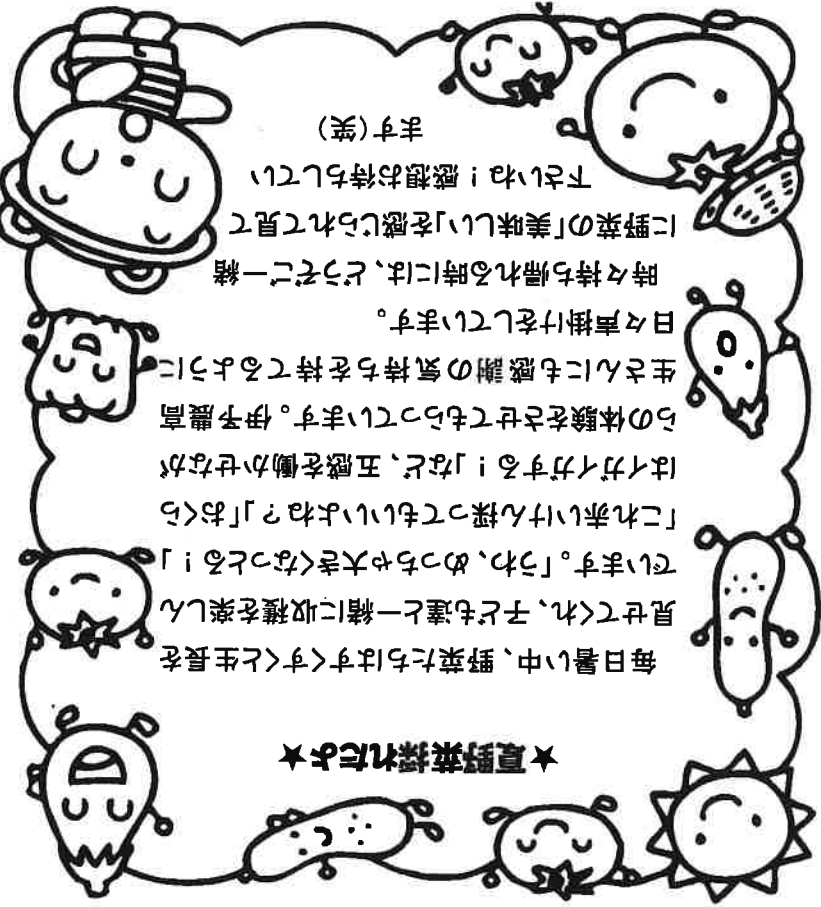 ★夏野菜採れたよ★
毎日暑い中、野菜たちはすくすくと生長を
見せてくれ、子ども達と一緒に収穫を楽しん
でいます。「うわ、めっちゃ大きくなっとる！」
「これ赤いけん採ってもいいよね？」「おくら
はイガイガする！」など、五感を働かせなが
らの体験をさせてもらっています。伊予農高
生さんにも感謝の気持ちを持てるように
日々声掛けをしています。
時々持ち帰れる時には、どうぞご一緒
に野菜の「美味しい」を感じられて見て
下さいね！感想お待ちしてい
ます(笑)